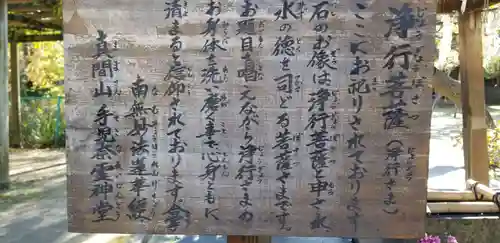 浄行菩薩（浄行さま）
ここにお祀りされております
石のお像は浄行菩薩と申され
水の徳を司どる菩薩さまです。
お題目を唱えながら浄行さまの
お身体を洗い慶ぶ事で心身ともに
清まると信仰されております。合掌
南無妙法蓮華経
真間山 手児奈霊神堂